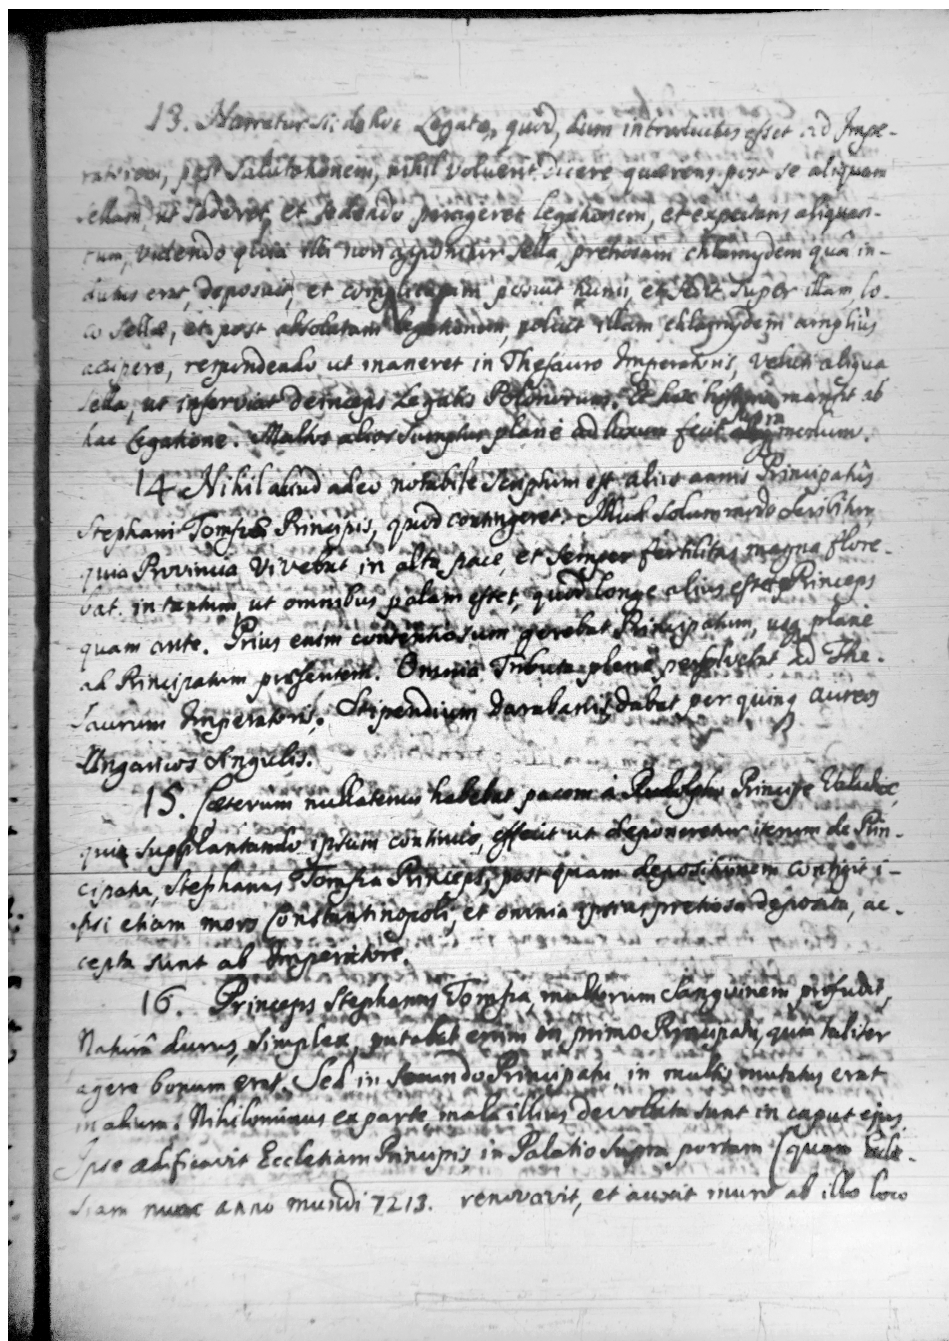 13. Narratur si: de hoc Legato, quòd, dum introductus esset ad Impe-
ratorem, post Salutationem, nihil voluerit dicere quærens post se aliquam
sellam, ut sederet, et sedendo perageret legationem, et expectans aliquan-
tum, videndo quia illi non apponitur sella, pretiosam chlamydem quâ in-
dutus erat, deposuit, et complicatam posuit humi, et sedit super illam, lo-
co sellæ, et post absolutam legationem, noluit illam chlamydem ampliùs
accipere, respondendo ut maneret in Thesauro Imperatoris, velut aliqua
sella, ut inserviat deinceps Legatis Polonorum. Et hæc historia mansit ab
hac Legatione. Multos alios sumptus planè ad luxum fecit supra menum.
14 Nihil aliud adeo notabile scriptum est aliis annis Principatûs
Stephani Tomsæ Principis, quod contingeret. Illud solummodo scribitur
quia Provincia vivebat in alta pace, et semper fertilitas magna flore-
bat. in tantum, ut omnibus palam esset, quòd longe alius esset Princeps
quam ante. Prius enim contentiosum gerebat Principatum, usq planè
ad Principatum præsentem. Omnia Tributa planè persolvebat ad The-
saurum Imperatoris. Stipendium Darabanis dabat per quinq aureos
Ungaricos singulis.
15. Cæterum nullatenus habebat pacem à Radulpho Principe Valachiæ,
quia supplantando ipsum continuò, effecit ut deponeretur iterum de Prin-
cipatu, Stephanus Tomsa Princeps, post quam depositionem contigit i-
psi etiam mors Constantinopoli, et omnia ipsius pretiosa deposita, ac-
cepta sunt ab Imperatore.
16. Princeps Stephanus Tomsa, multorum sanguinem profudit,
Naturâ durus, simplex, putabat enim in primo Principatu, quia taliter
agere bonum erat. Sed in secundo Principatu in multis mutatus erat
in alium. Nihilominus ex parte mala illius devoluta sunt in caput ejus.
Ipse ædificavit Ecclesiam Principis, in Palatio supra portam (quam Eccle-
siam nunc anno mundi 7213. renovavit, et auxit muro ab illo loco